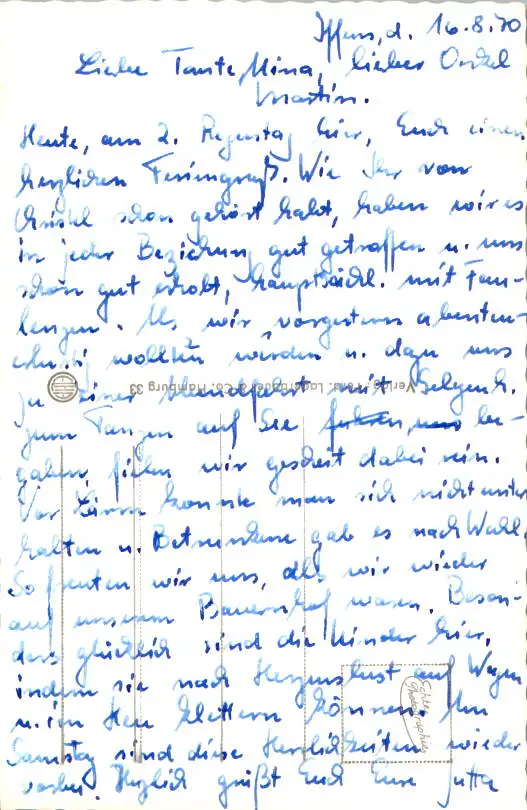 d. 16.8.70
Liebe Tante Mina, lieber Onkel
Martin.
Heute, am 2. Regentag hier, Euch einen
herzlichen Feriengruß. Wie Ihr von
Christel schon gehört habt, haben wir es
in jeder Beziehung gut getroffen u. uns
schon gut erholt, hauptsächl. mit Fau-
lenzen. Als wir vorgestern abenteu-
wollten werden u. dazu uns
zu einer Abendfahrt mit Gelegenh.
zum Tanzen auf See fahren, uns be-
gaben, fielen wir gescheit dabei rein.
Vor Lärm konnte man sich nicht unter
halten u. Betrunkene gab es nach Wahl.
So freuten wir uns, als wir wieder
auf unserem Bauernhof waren. Beson-
ders glücklich sind die Kinder hier,
indem sie nach Herzenslust auf Wagen
u. im Heu klettern können. Am
Samstag sind diese Herrlichkeiten wieder
vorbei. Herzlich grüßt Euch Eure Jutta
Hamburg 33